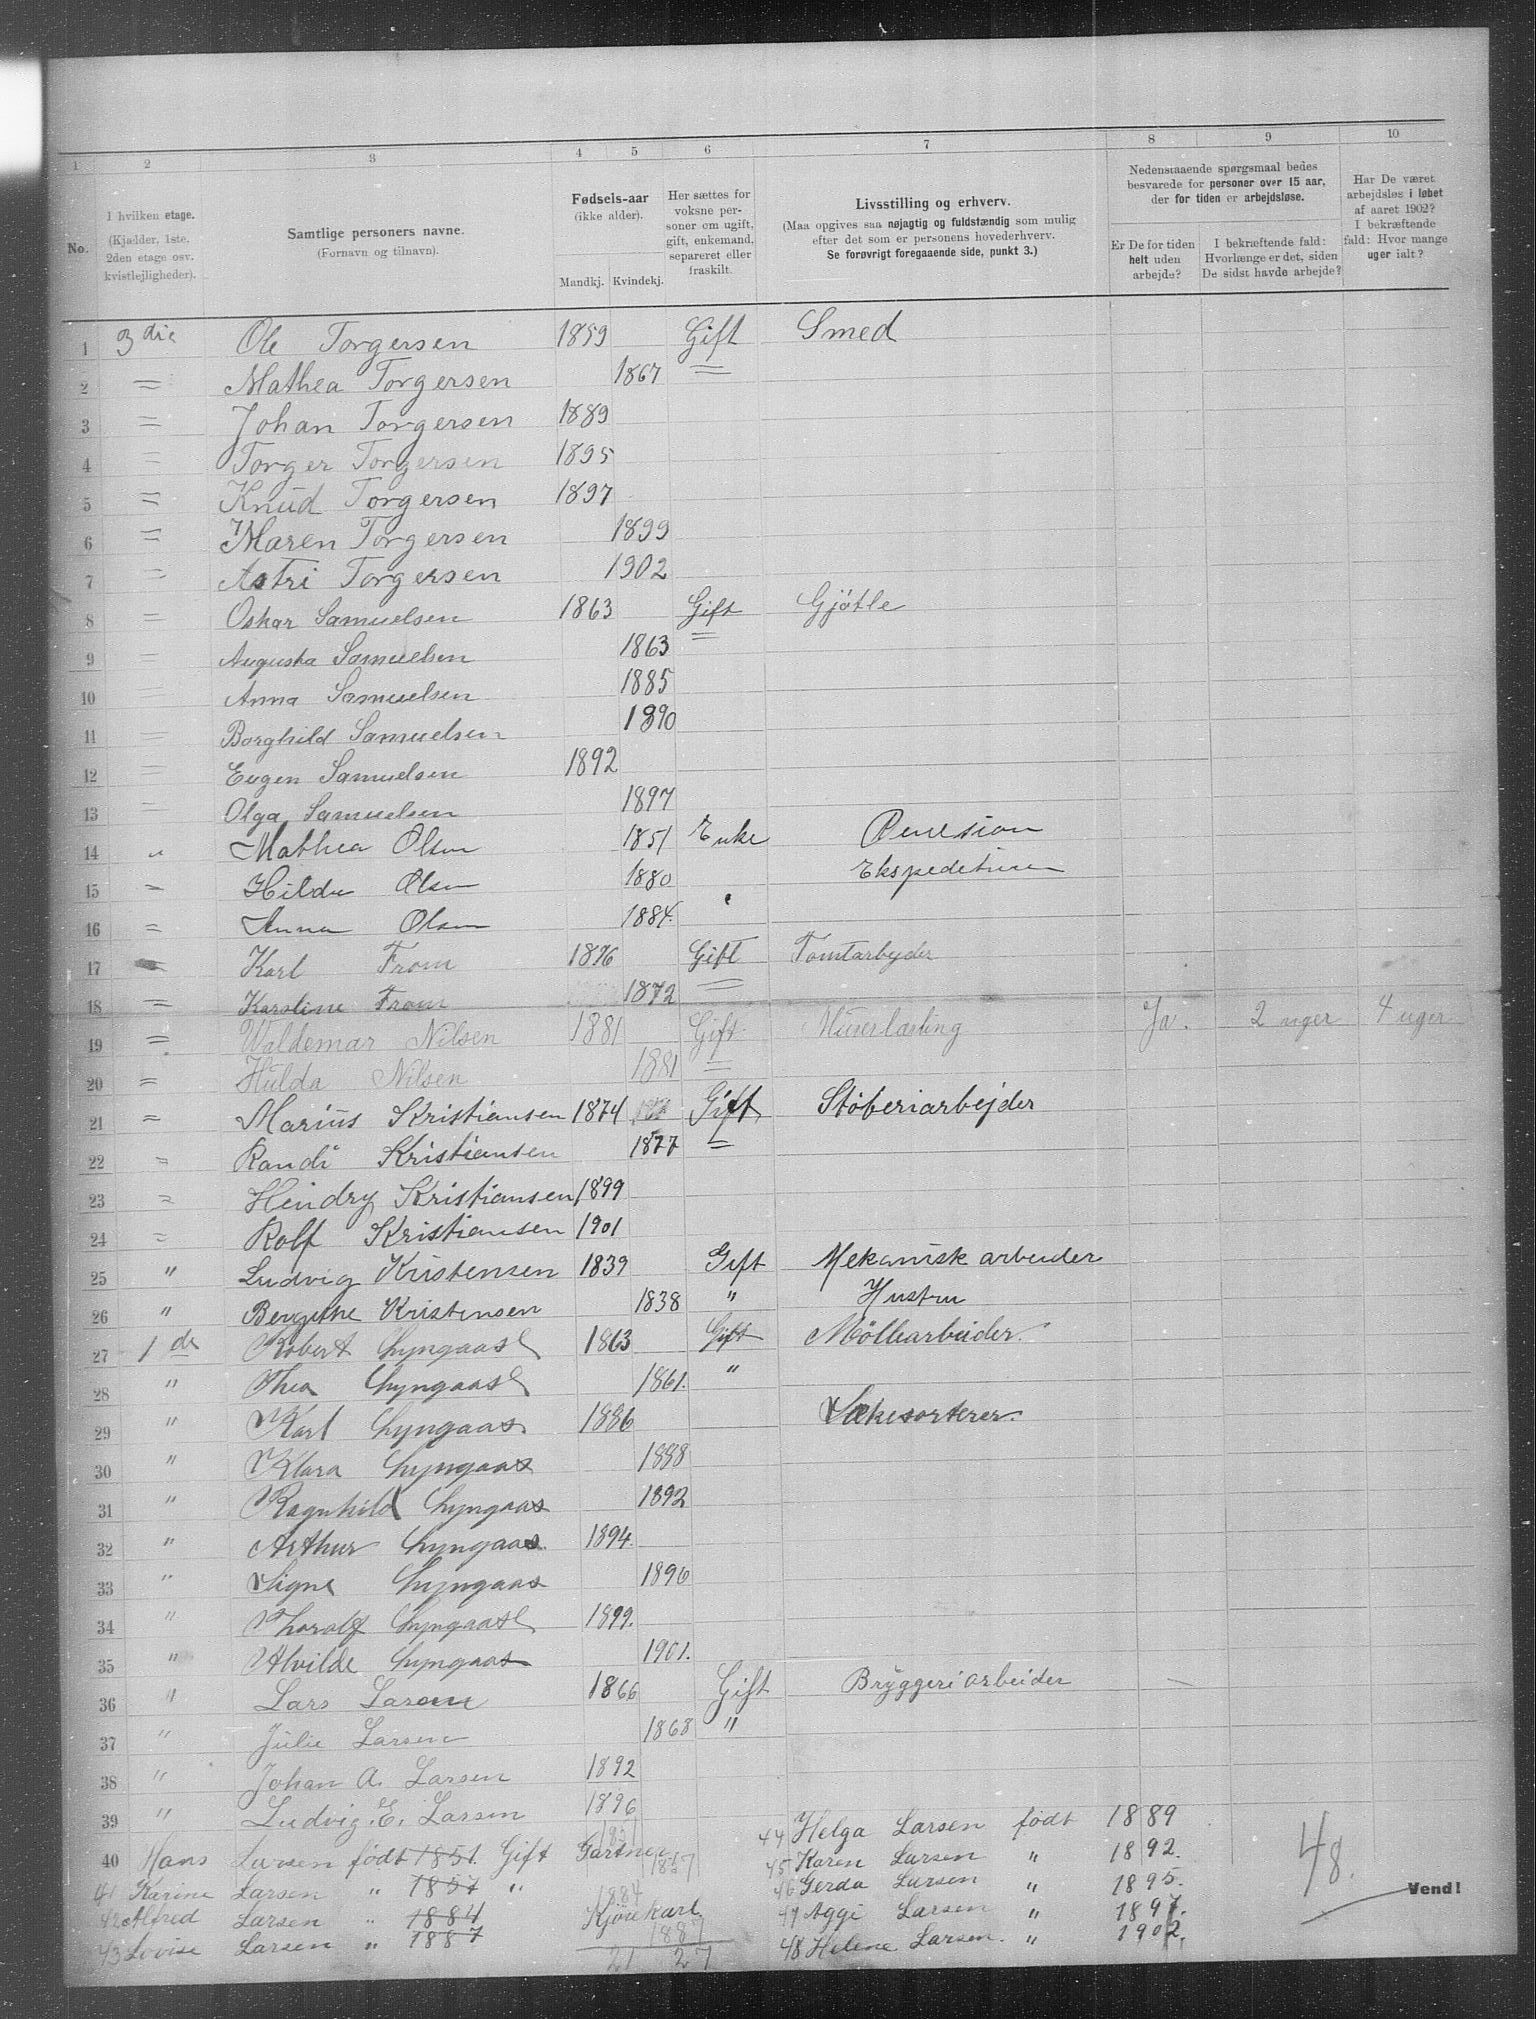 1 2 3 4 5 6 7 8 9 10
No.
I hvilken etage. (Kjælder, 1ste, 2den etage osv. kvistlejligheder).
Samtlige personers navne. (Fornavn og tilnavn).
Fødsels-aar (ikke alder). Mandkj. Kvindekj.
Her sættes for voksne personer om ugift, gift, enkemand, separeret eller fraskilt.
Livsstilling og erhverv. (Maa opgives saa nøjagtig og fuldstændig som mulig efter det som er personens hovederhverv. Se forøvrigt foregaaende side, punkt 3.)
Nedenstaaende spørgsmaal bedes besvarede for personer over 15 aar, der for tiden er arbejdsløse.
Er De for tiden helt uden arbejde?
I bekræftende fald: Hvorlænge er det, siden De sidst havde arbejde?
Har De været arbejdsløs i løbet af aaret 1902? I bekræftende fald: Hvor mange uger ialt?
1 3die Ole Torgersen 1859 Gift Smed
2 = Mathea Torgersen 1867 =
3 = Johan Torgersen 1889
4 = Torger Torgersen 1895
5 = Knud Torgersen 1897
6 = Maren Torgersen 1899
7 = Astri Torgersen 1902
8 = Oskar Samuelsen 1863 Gift Gjøtle
9 = Augusta Samuelsen 1863 =
10 = Anna Samuelsen 1885
11 = Borghild Samuelsen 1890
12 = Eugen Samuelsen 1892
13 = Olga Samuelsen 1897
14 " Mathea Olsen 1851 Enke Pension
15 = Hilda Olsen 1880 Ekspeditrise
16 = Anna Olsen 1884.
17 = Karl From 1876 Gift Tomtarbyder
18 = Karoline From 1872 =
19 = Waldemar Nilsen 1881 Gift Murerlærling Ja. 2 uger 4 uger
20 = Hulda Nilsen 1881 =
21 = Marius Kristiansen 1874 Gift Støberiarbejder
22 = Randi Kristiansen 1877 =
23 = Hendry Kristiansen 1899
24 = Rolf Kristiansen 1901
25 " Ludvig Kristensen 1839 Gift Mekanisk arbeider
26 " Bergitne Kristensen 1838 " Hustru
27 1 de Robert Lyngaas 1863 Gift Møllearbeider.
28 " Thea Lyngaas 1861. "
29 " Karl Lyngaas 1886 Sækesorterer.
30 " Klara Lyngaas 1888
31 " Ragnhild Lyngaas 1892
32 " Arthur Lyngaas 1894.
33 " Signe Lyngaas 1896
34 " Thoralf Lyngaas 1899.
35 " Alvilde Lyngaas 1901.
36 " Lars Larsen 1866 Gift Bryggeri arbeider
37 " Julie Larsen 1868 "
38 " Johan A. Larsen 1892
39 " Ludvig. E. Larsen 1896
40 Hans Larsen født 1851. Gift Gartner 1851
41 Karine Larsen " 1857 " 1857
42 Alfred Larsen " 1884 Kjørekarl. 1884
43 Lovise Larsen " 1887 1887
21 27
44 Helga Larsen født 1889
45 Karen Larsen " 1892.
46 Gerda Larsen " 1895.
47 Aggi Larsen " 1897.
48 Helene Larsen. " 1902.
48.
Vend!